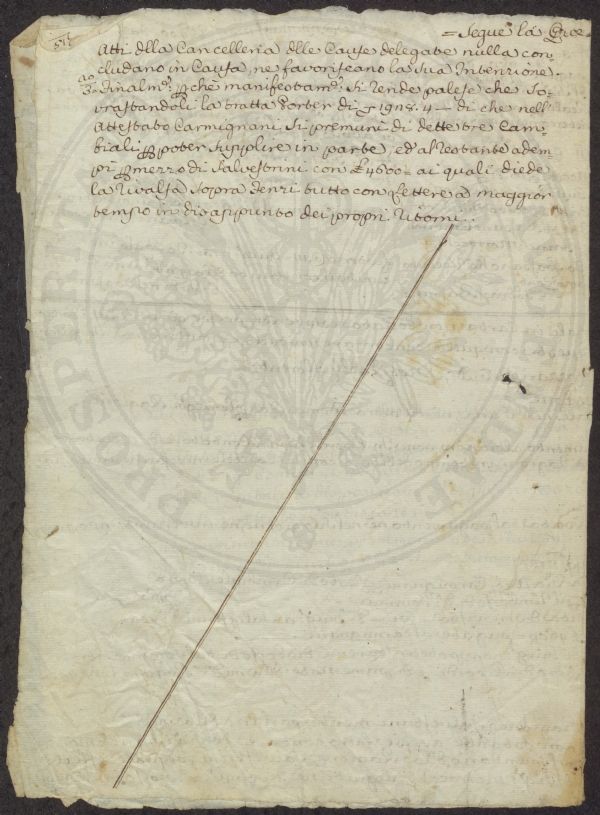 = Segue la
Atti dlla Cancelleria dlle Cause delegate nulla con-
cludano in Causa, ne favoriscano la sua Intenzione.
ao
3. Finalm.e, pche manifestam.e si rende palese che so-
vrastandoli la tratta Porter di 4 = di che nell'
Attestato Carmignani si premunì di dette tre Cam-
biali p poter supplire in parte, ed al restante adem-
pì p mezzo di Salvestrini con £ 4600 = ai quali diede
la rivalsa sopra denri tutto con Lettere a maggior
tempo in disappunto dei propri ritorni.
PROSPERIT